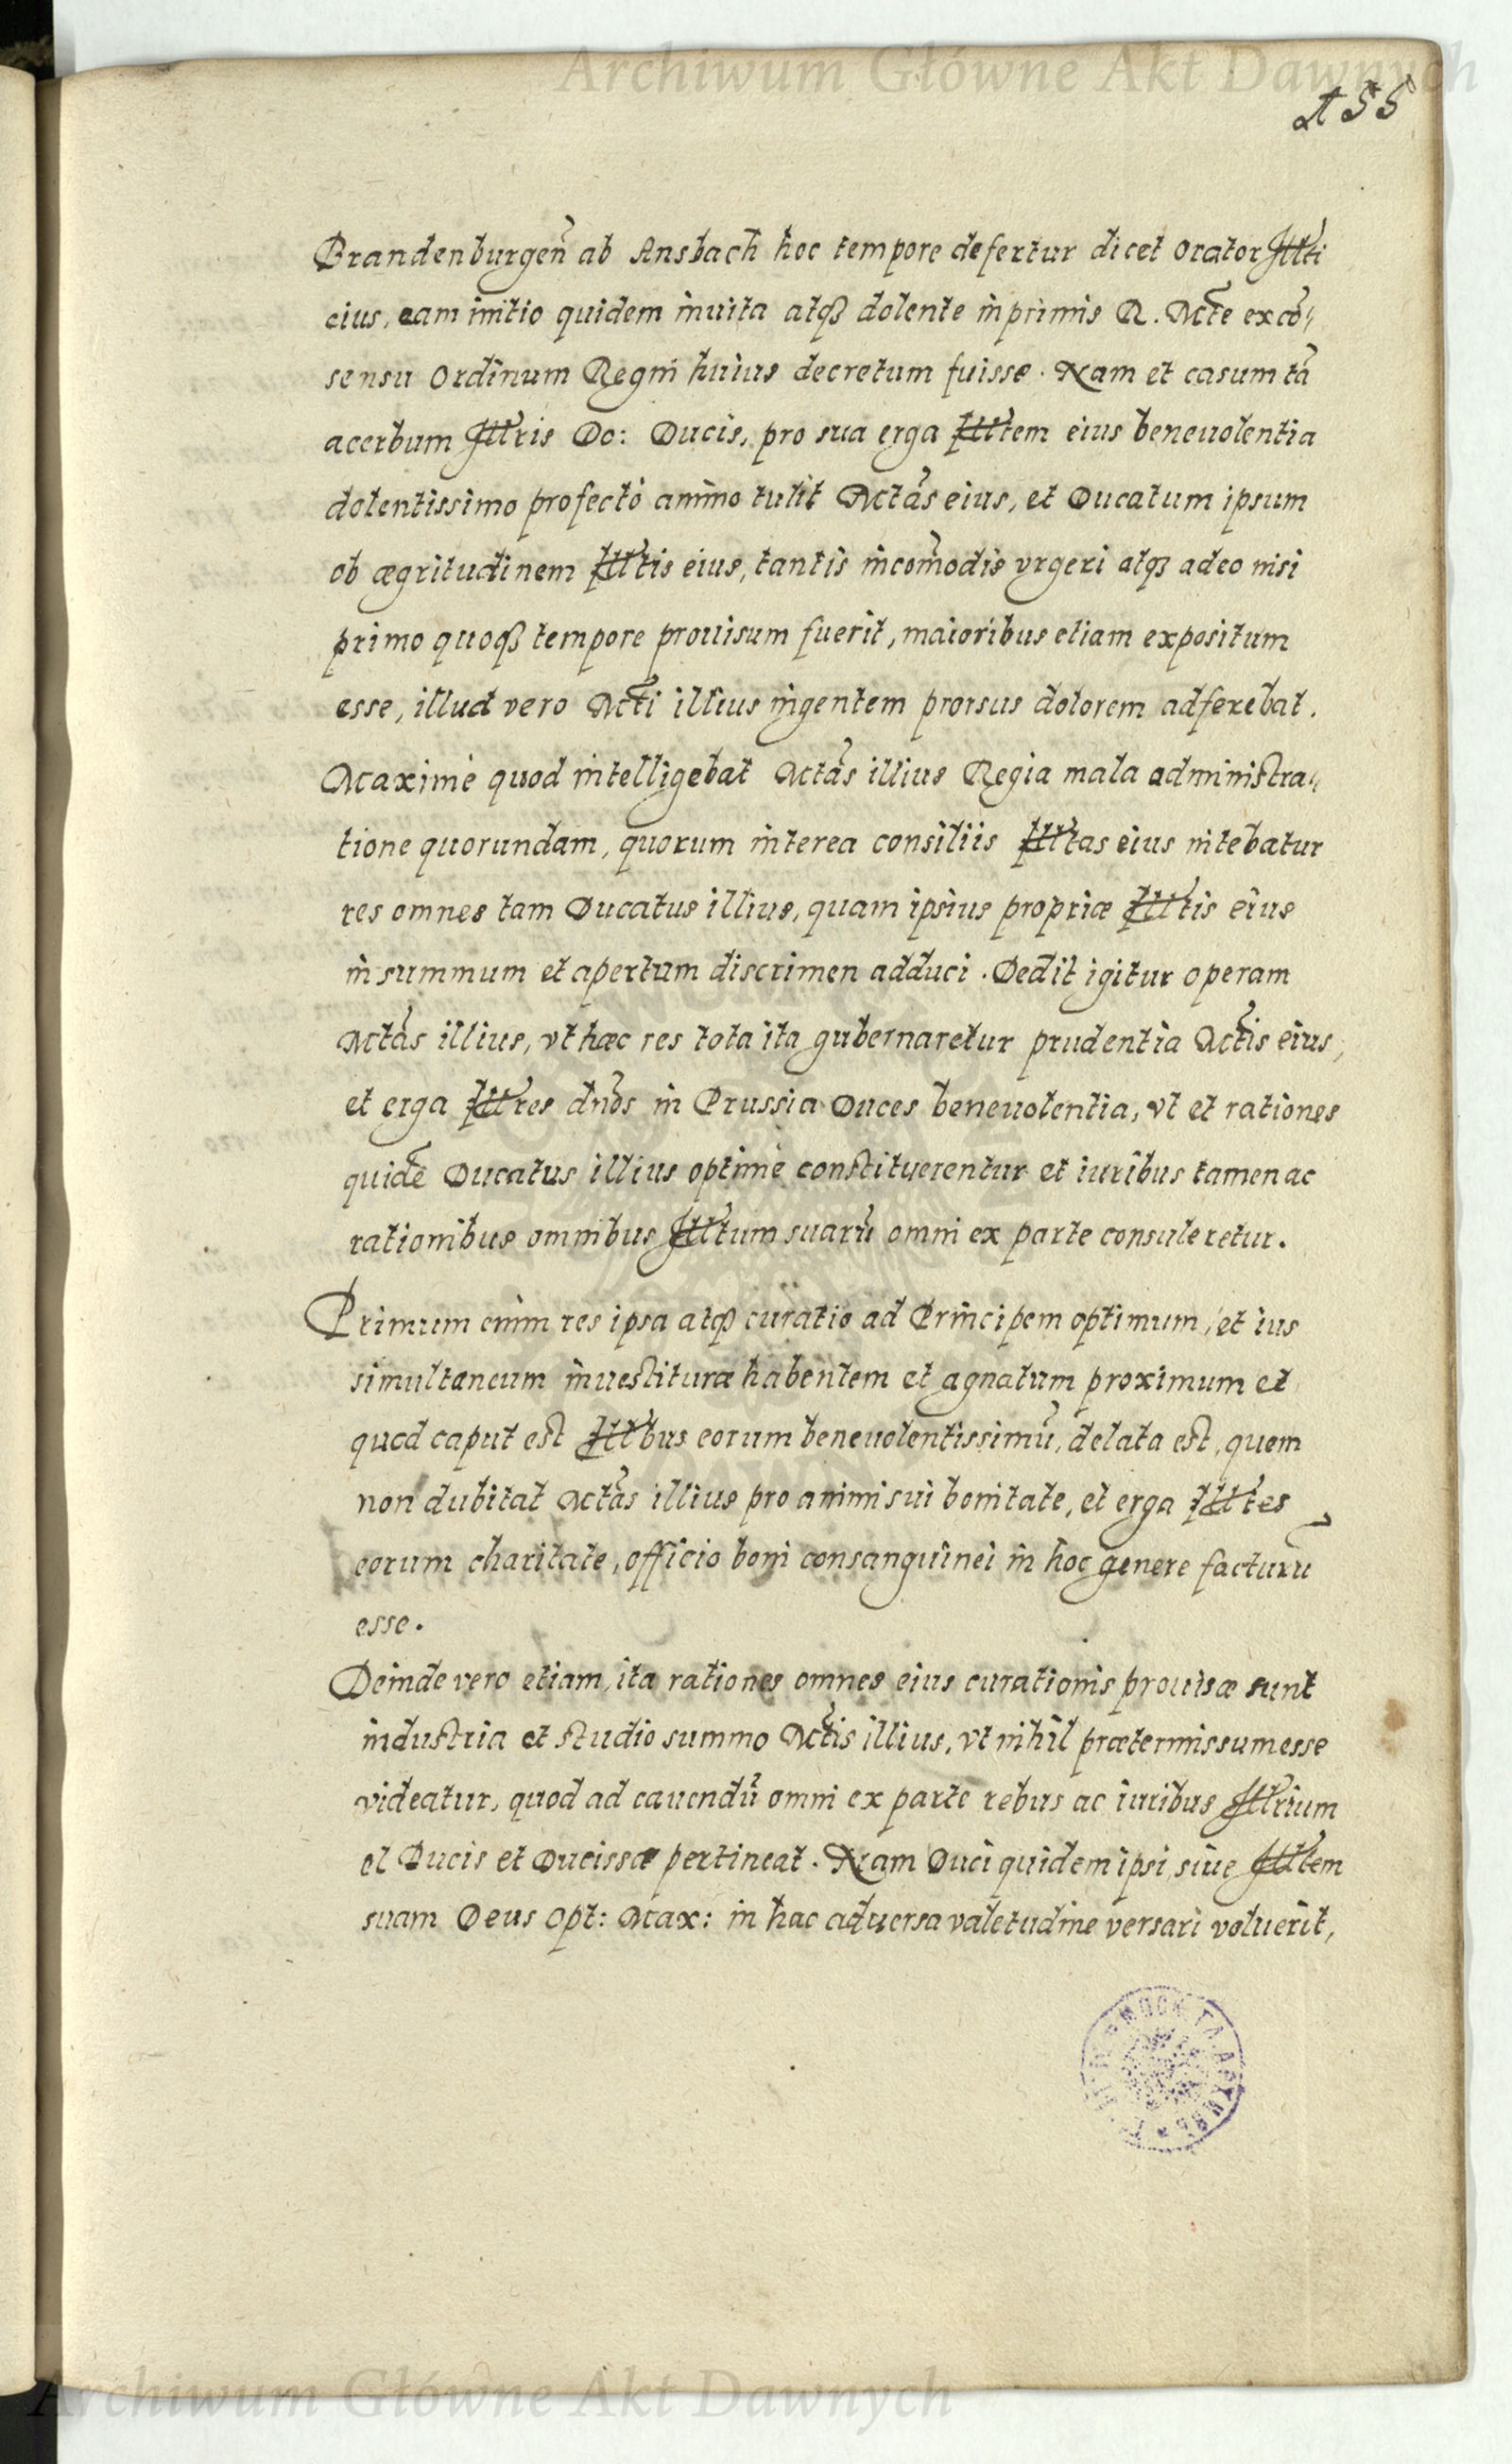 Archiwum Główne Akt Dawnych
155
Brandenburgen̄ ab Ansbach hoc tempore defertur dicet Orator Illti
eius, eam initio quidem inuita atq́ꝫ dolente inprimis R. Mt̃e ex cõ„
sensu Ordinum Regni huius decretum fuisse. Nam et casum tã
acerbum Illris Do: Ducis, pro sua erga Illtem eius beneuolentia
dolentissimo profectò animo tulit Mtãs eius, et Ducatum ipsum
ob ægritudinem Illtis eius, tantis incom̃odis vrgeri atqꝫ adeo nisi
primo quoqꝫ tempore prouisum fuerit, maioribus etiam expositum
esse, illud vero Mt̃i illius ingentem prorsus dolorem adferebat.
Maximè quod intelligebat Mtãs illius Regia mala administra„
tione quorundam, quorum interea consiliis Illtas eius nitebatur
res omnes tam Ducatus illius, quam ipsius propriæ Illtis eius
in summum et apertum discrimen adduci. Dedit igitur operam
Mtãs illius, vt hæc res tota ita gubernaretur prudentia Mt̃is eius,
et erga Illres dnõs in Prussia Duces beneuolentia, vt et rationes
quidẽ Ducatus illius optimè constituerentur et iuribus tamen ac
rationibus omnibus Illtum suarũ omni ex parte consuleretur.
Primum enim res ipsa atqꝫ curatio ad Principem optimum, et ius
simultaneum inuestituræ habentem et agnatum proximum et
quod caput est Illtbus eorum beneuolentissimũ, delata est, quem
non dubitat Mtãs illius pro animi sui bonitate, et erga Illtes
eorum charitate, officio boni consanguinei in hoc genere facturũ
esse.
Deinde vero etiam, ita rationes omnes eius curationis prouisæ sunt
industria et studio summo Mt̃is illius, vt nihil prætermissum esse
videatur, quod ad cauendũ omni ex parte rebus ac iuribus Illrium
et Ducis et Ducissæ pertineat. Nam Duci quidem ipsi, siue Illtem
suam Deus Opt: Max: in hac aduersa valetudine versari voluerit,
Archiwum Główne Akt Dawnych